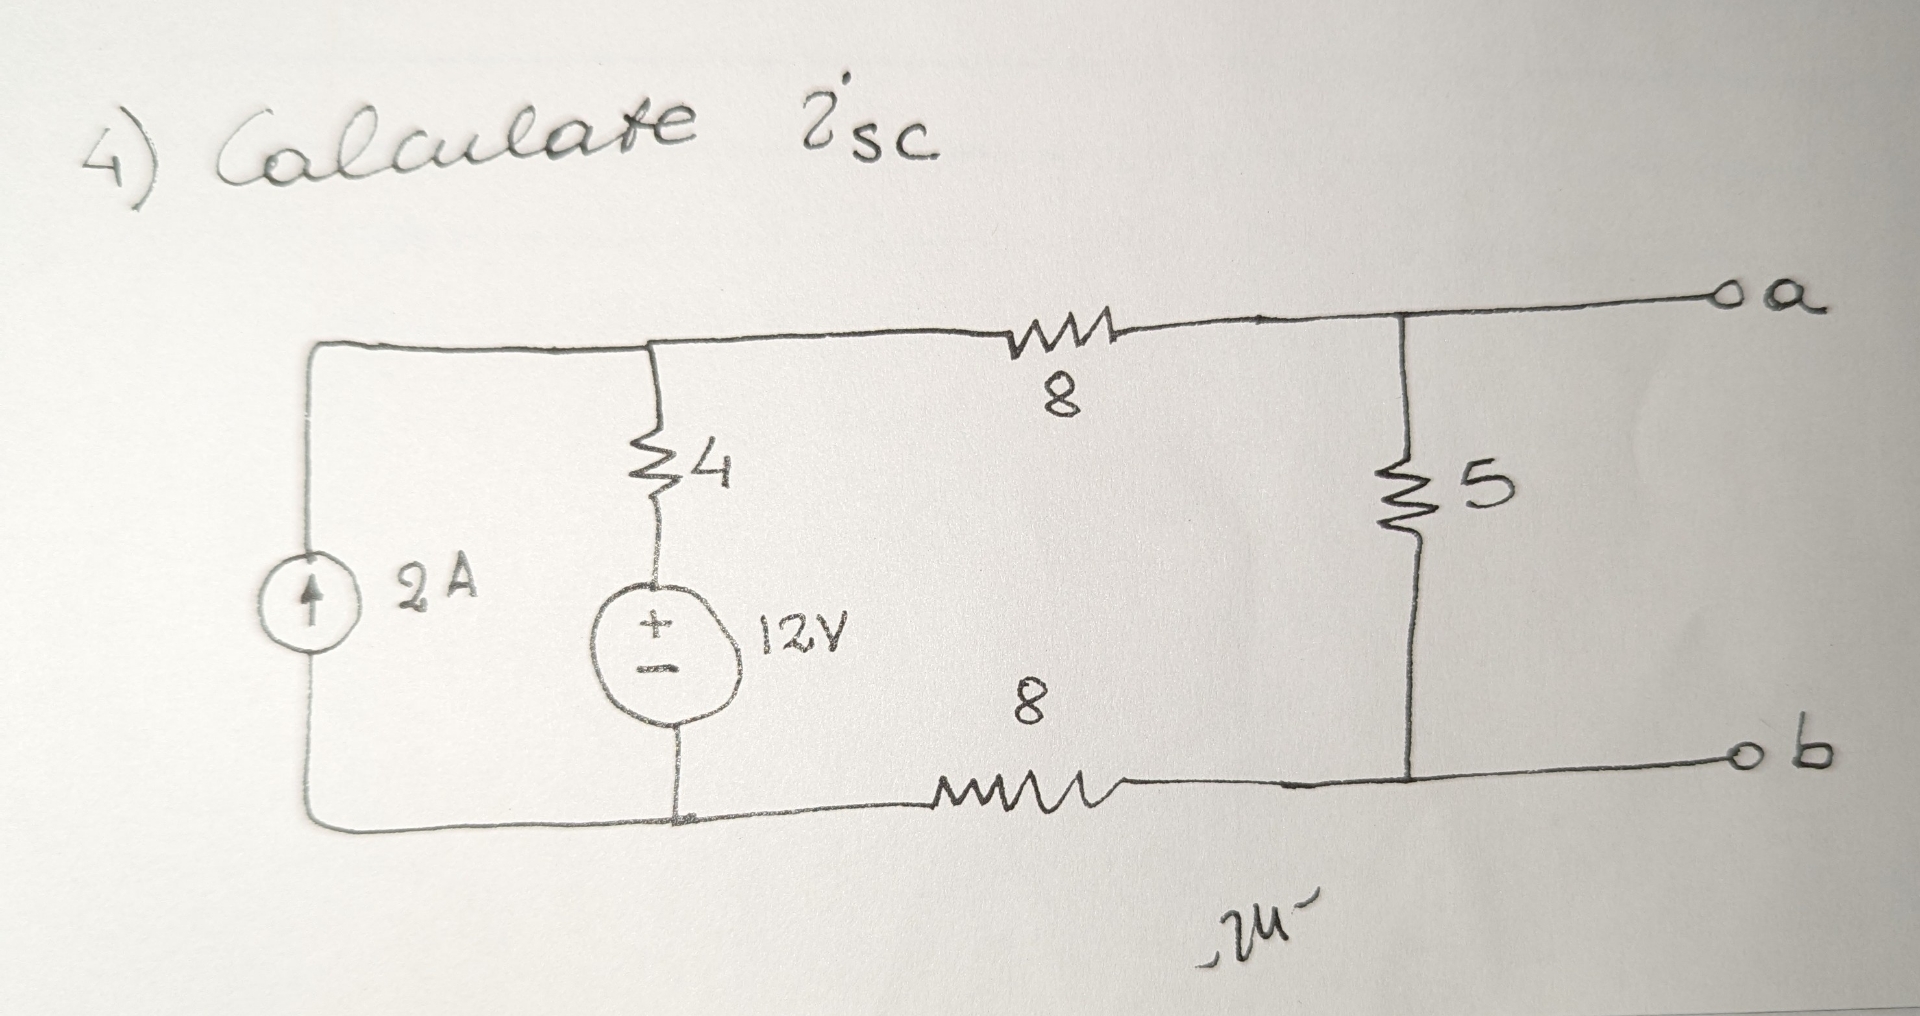 4) Calculate isc
a
8
4
5
2A
+
12V
−
8
b